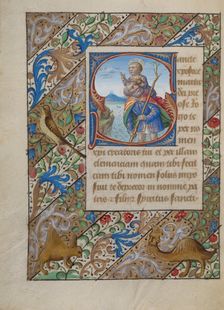 ancte
xpofore
martir
dei pre
ciose Ro
go te
per no
men
xpi creatoris tui et per illam
clemenciam quam tibi fecit
cum tibi nomen solus impo
suit te deprecor in nomine pa
tris et filii et spiritus sancti